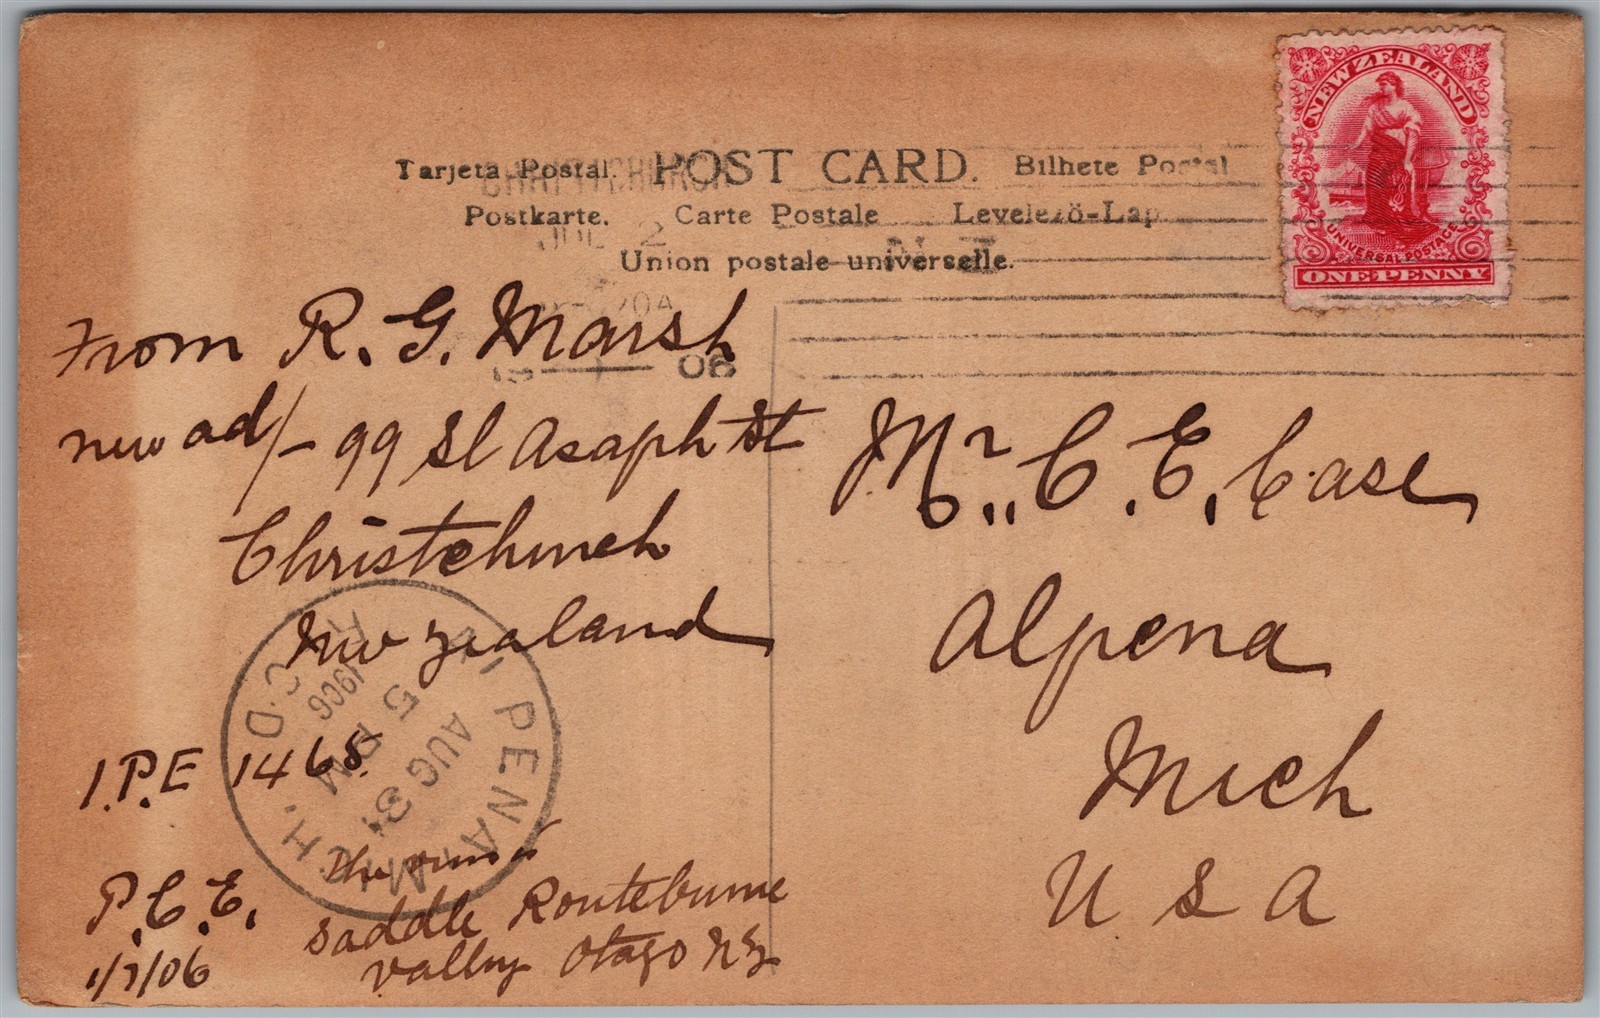 NEW ZEALAND
UNIVERSAL POSTAGE
ONE PENNY
Tarjeta Postal. POST CARD. Bilhete Postal
Postkarte. Carte Postale Levelező-Lap
Union postale universelle.
CHRISTCHURCH
JUL 2
06
From R. G. Marsh
new ad/- 99 St Asaph St
Christchurch
New Zealand
I.P.E 1468.
P.C.E.
1/7/06
saddle Routeburne
valley Otago NZ
Mr. C. E. Case
Alpena
Mich
U S A
ALPENA MICH.
REC'D.
AUG 31
5 PM
1906